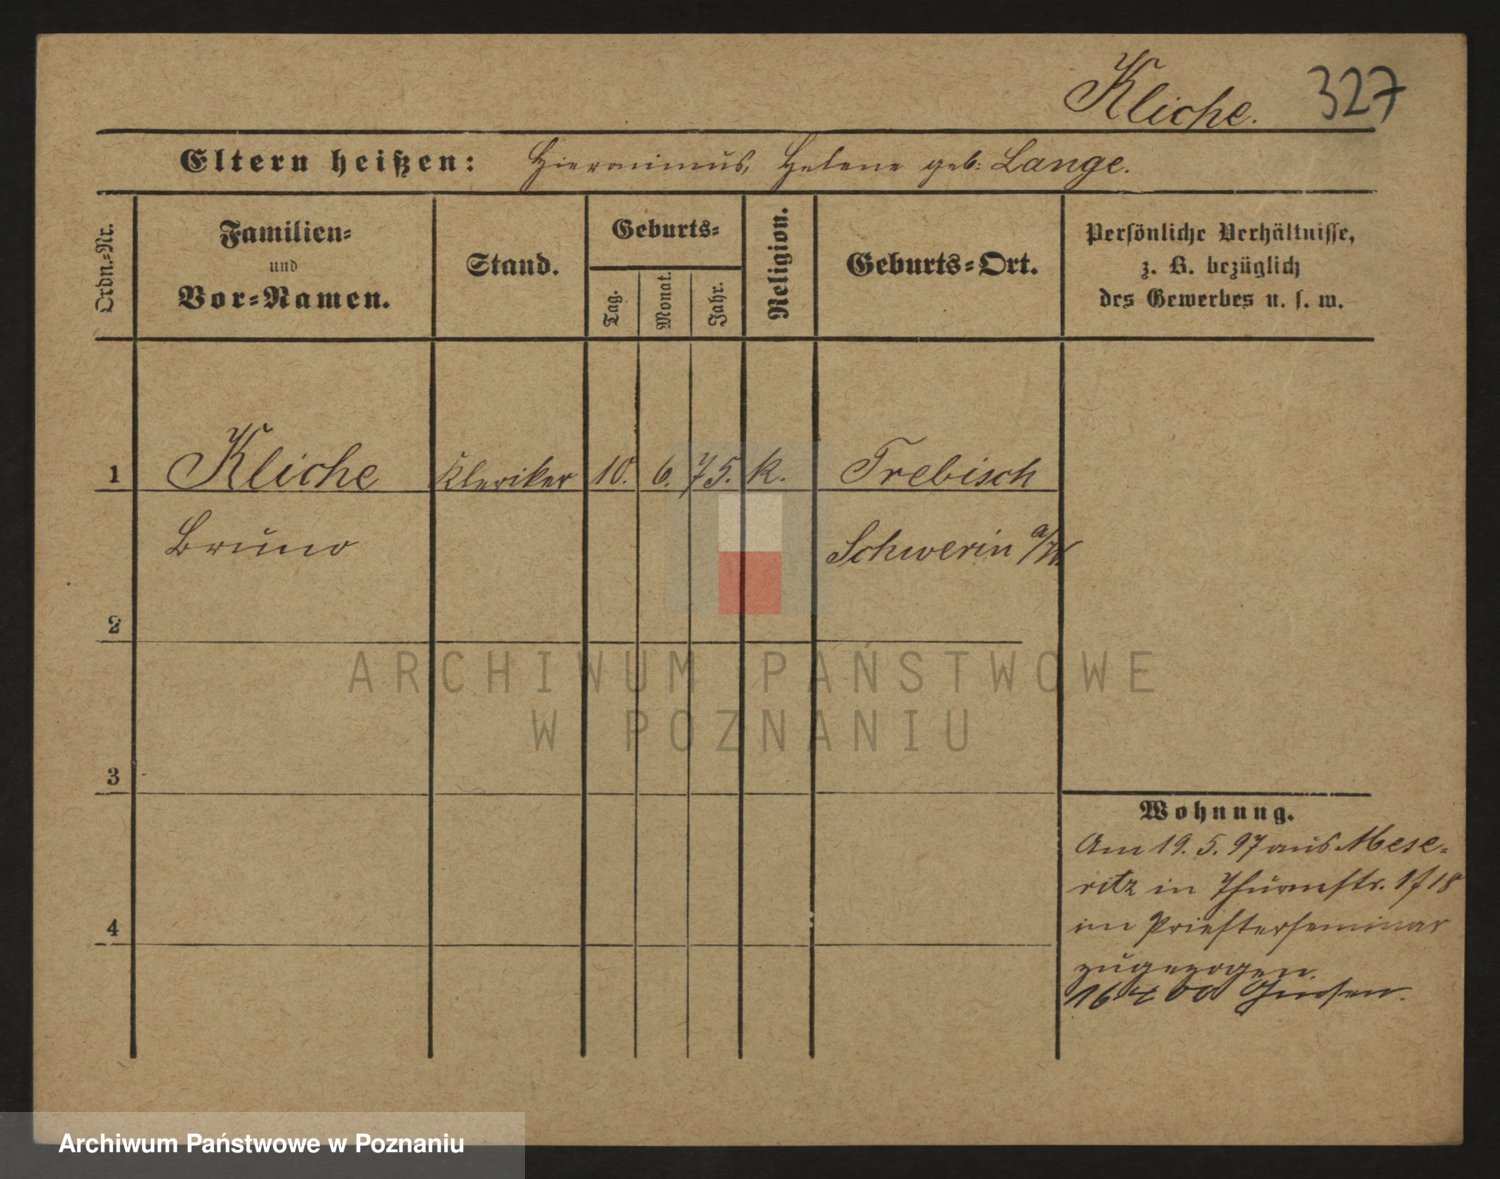 Kliche. 327
Eltern heißen: Hieronimus, Helene geb. Lange.
Ordn.-Nr.
Familien-
und
Vor-Namen.
Stand.
Geburts-
Tag.
Monat.
Jahr.
Religion.
Geburts-Ort.
Persönliche Verhältnisse,
z. B. bezüglich
des Gewerbes u. s. w.
1 Kliche Kleriker 10. 6. 75. k. Trebisch
Bruno Schwerin a/W
2
ARCHIWUM PAŃSTWOWE
W POZNANIU
3
Wohnung.
Am 19. 5. 97 aus Mese-
ritz in Thurmstr. 17/18
im Priesterseminar
4
zugezogen.
16 00 Gnesen.
Archiwum Państwowe w Poznaniu